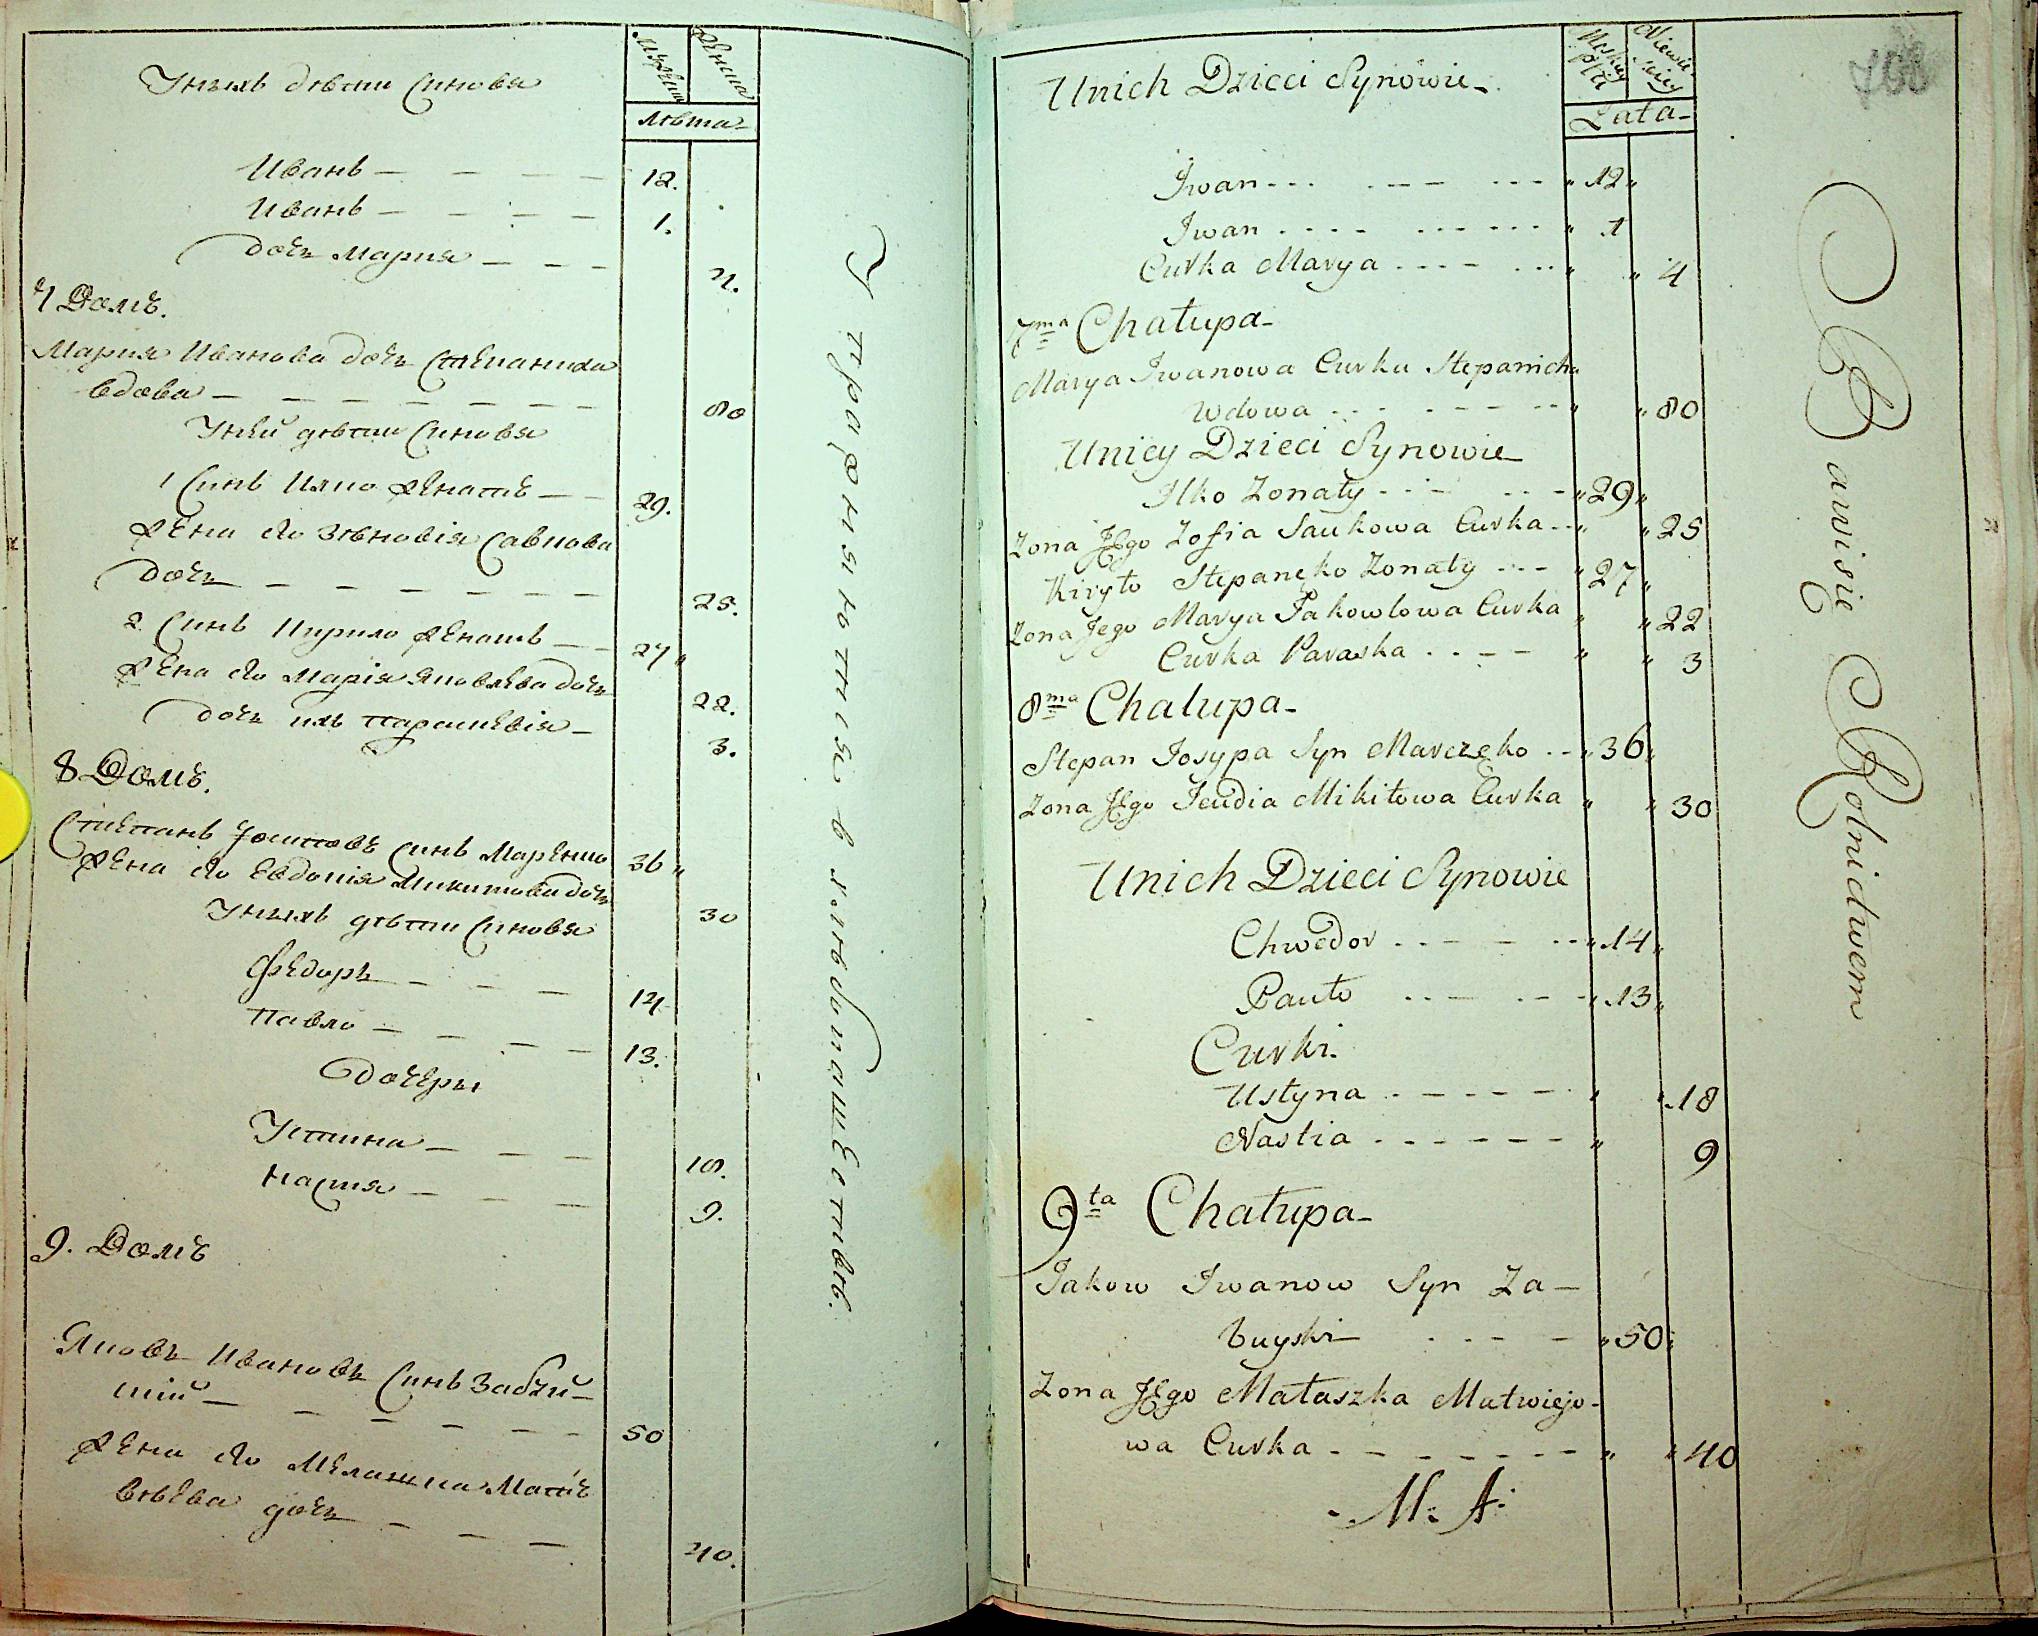 Унихъ дѣти Синовя
Мужеска
Женска
лѣта
Иванъ — — — — 12.
Иванъ — — — — 1.
дочъ Мария — — — 4.
7 Домъ.
Мария Иванова дочъ Степаниха
вдова — — — — — — — 80
Уней дѣти Синовя
1 Синъ Илко женатъ — — 29.
жена его Зѣновія Савкова
дочъ — — — — — — 25.
2 Синъ Кирило женатъ — — 27 „
жена его Марія Яковлева дочъ 22.
дочъ ихъ Парашкевія — 3.
8 Домъ.
Степанъ Йосиповъ Синъ Марченко 36 „
жена его Евдокія Микитова дочъ 30
Унихъ дѣти Синовя
Федоръ — — — 14
Павло — — — — 13.
Дочеры
Устина — — — 18.
Настя — — — 9.
9. Домъ
Яковъ Ивановъ Синъ Забуй-
скій — — — — — — 50
жена его Мелашка Мат-
вѣева дочъ — — — 40.
Упражняютися в хлѣбопашествѣ.
Unich Dzieci Synowie
Męskiey płci
Niewieściey
Lata
Iwan - - - „ 12 „
Iwan - - - „ 1
Curka Marya - - - „ „ 4
7ma Chałupa
Marya Iwanowa Curka Stepanicha
Wdowa - - - „ „ 80
Unicy Dzieci Synowie
Ilko Zonaty - - - „ 29 „
Zona Jego Zofia Saukowa Curka - - „ „ 25
Kiryło Stepanęko Zonaty - - - „ 27 „
Zona Jego Marya Jakowlowa Curka „ „ 22
Curka Paraska - - - „ „ 3
8ma Chalupa
Stepan Josypa Syn Marczęko - - „ 36 „
Zona Jego Jeudia Mikitowa Curka „ „ 30
Unich Dzieci Synowie
Chwedor - - - „ 14 „
Pauło - - - „ 13 „
Curki
Ustyna - - - „ „ 18
Nastia - - - „ 9
9ta Chałupa
Jakow Iwanow Syn Za-
buyski - - - „ 50 „
Zona Jego Małaszka Matwiejo-
wa Curka - - - „ „ 40
M: A:
Bawisię Rolnictwem